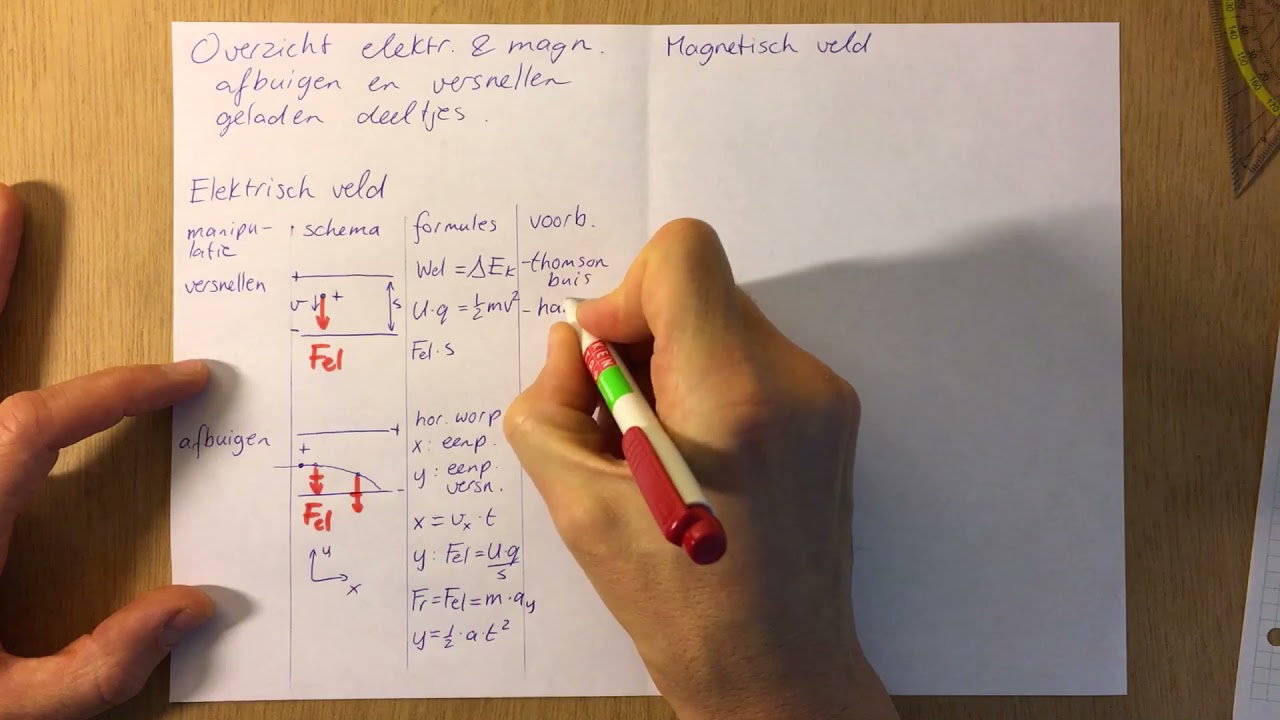 Overzicht elektr. & magn.
afbuigen en versnellen
geladen deeltjes.
Magnetisch veld
Elektrisch veld
manipu-
latie
schema
formules
voorb.
versnellen
+
v
+
s
-
Fel
Wel = ΔEk
U·q = ½mv²
Fel·s
-thomson
buis
- ha
afbuigen
+
+
-
Fel
y
x
hor. worp
x: eenp.
y: eenp.
versn.
x = vx·t
y: Fel = U·q
s
Fr = Fel = m·ay
y = ½·at²